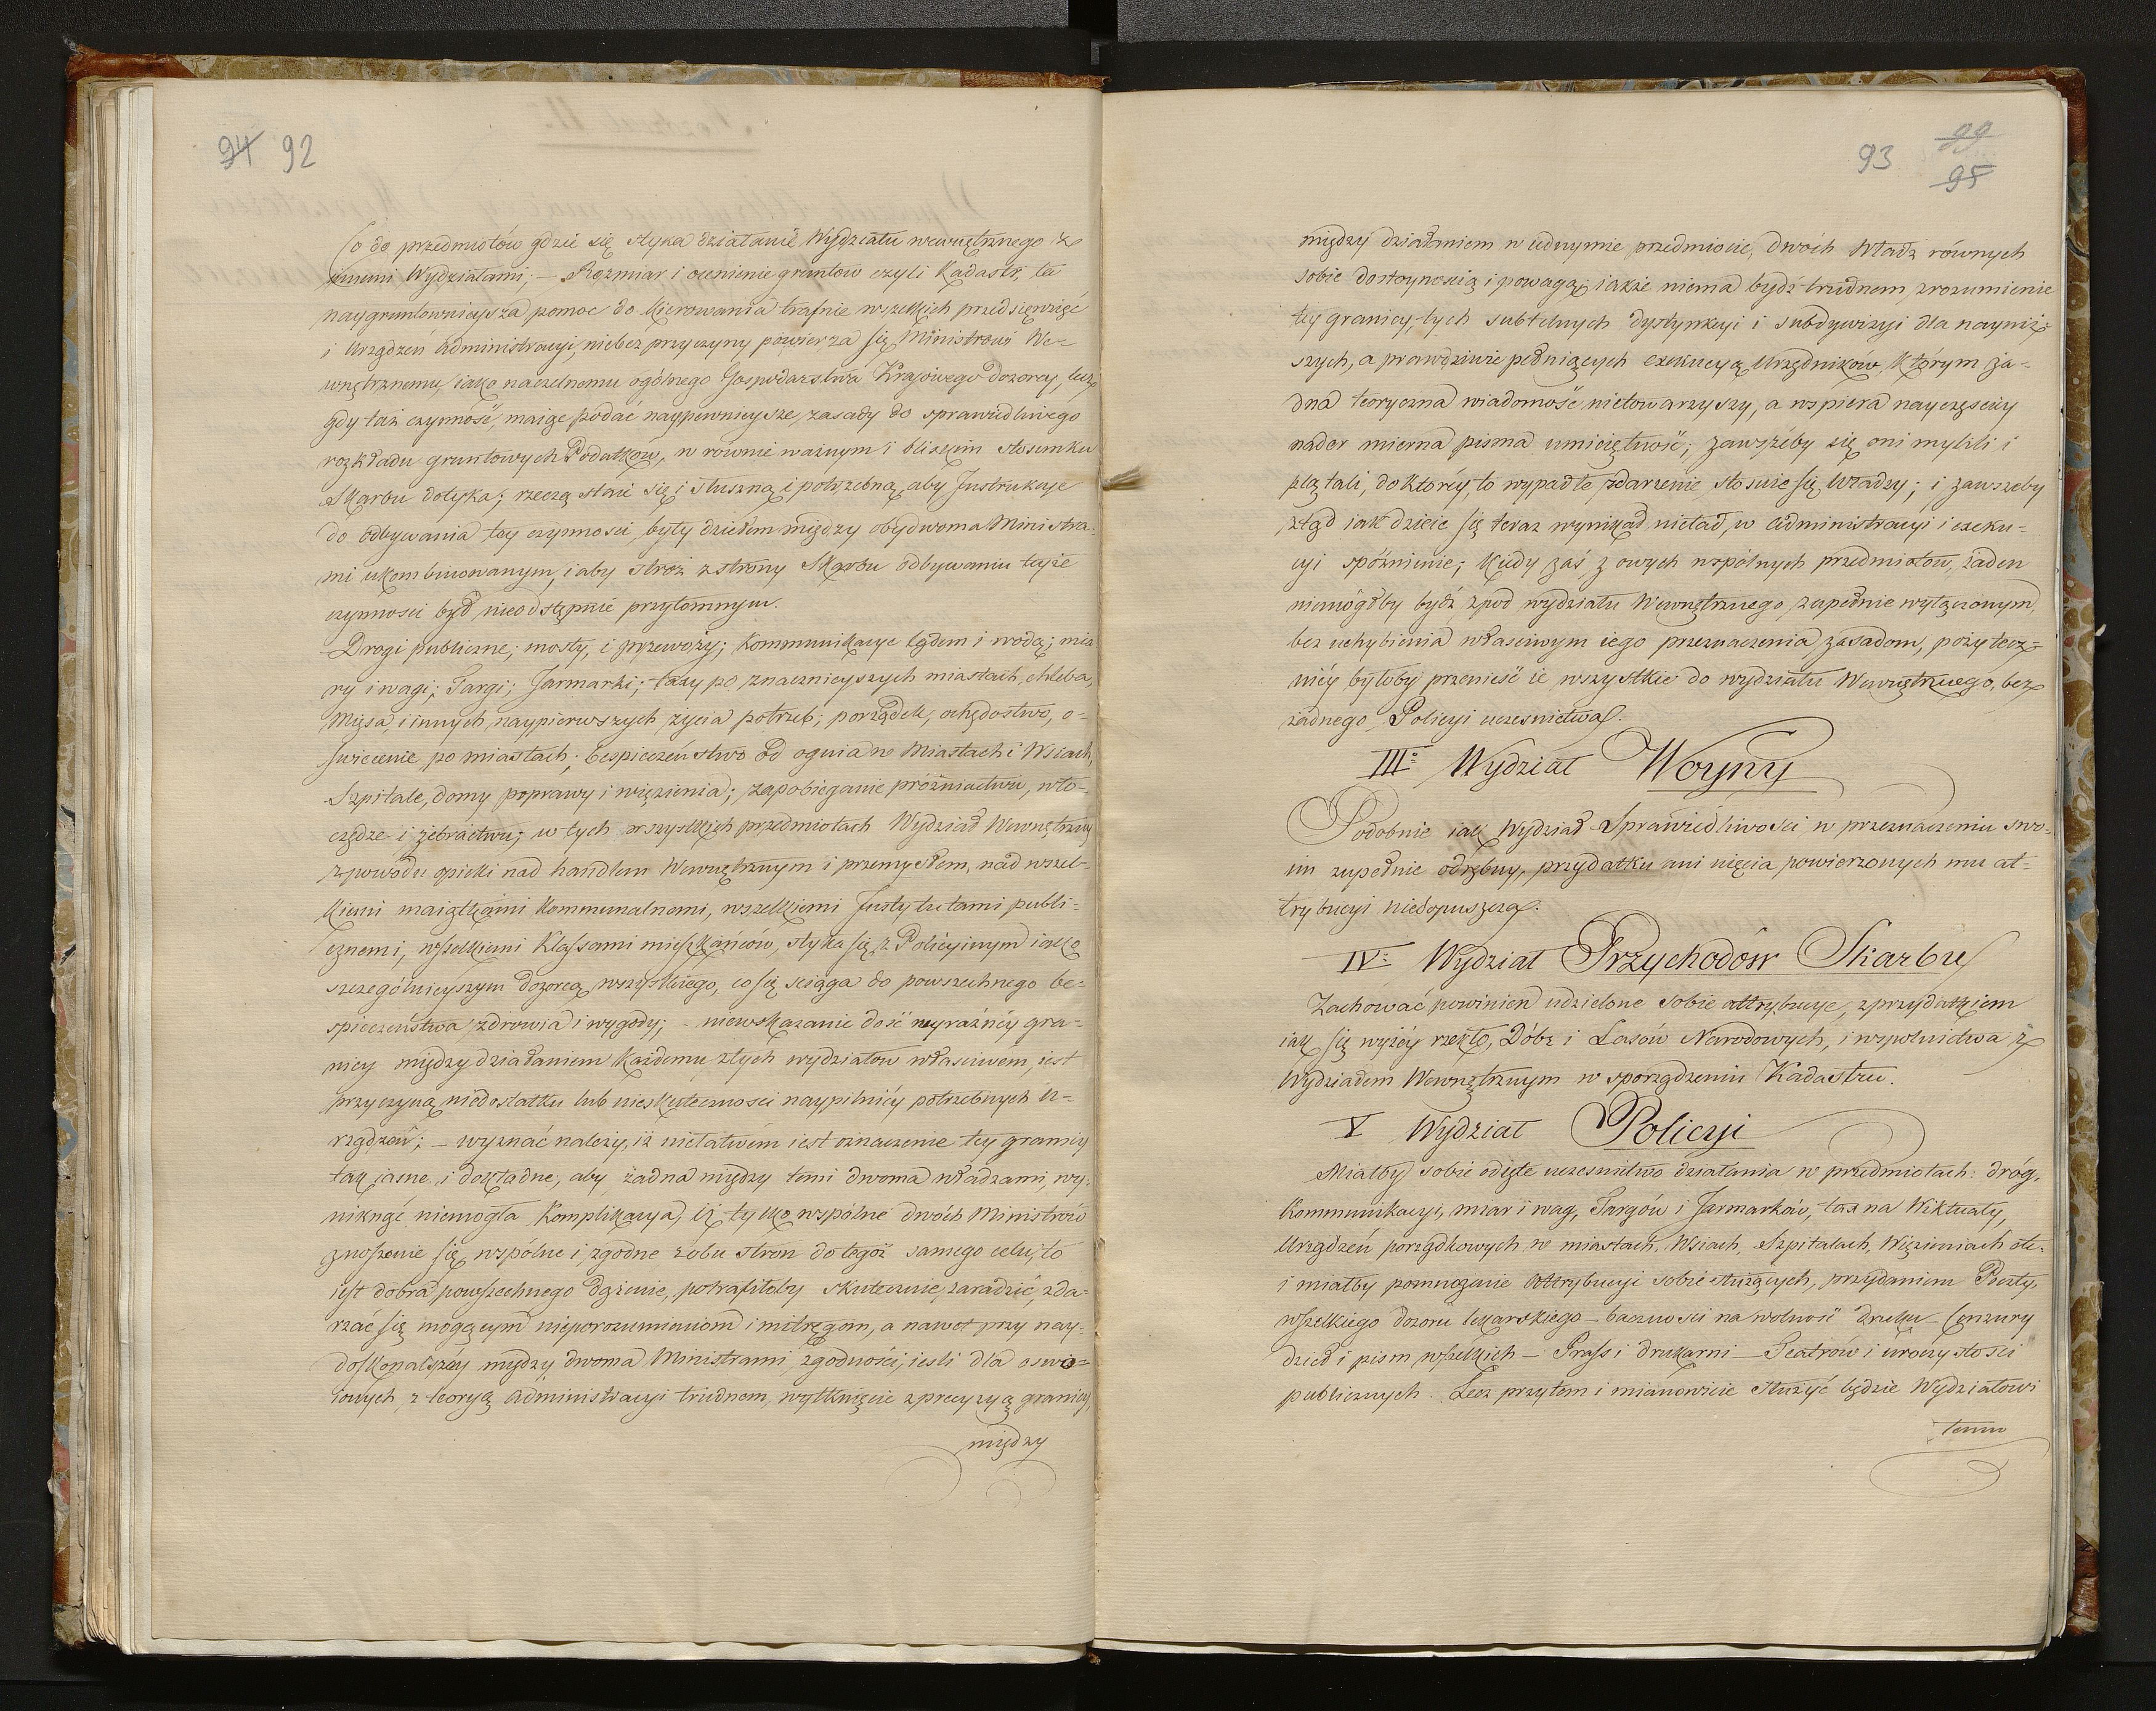 94 92
Co do przedmiotów gdzie się styka działanie Wydziału wewnętrznego z
innemi Wydziałami; — Rozmiar i ocenienie gruntów czyli Kadastr, ta
naygruntownieysza pomoc do kierowania trafnie wszelkich przedsięwzięć
i Urządzeń Administracyi, niebez przyczyny powierza się Ministrowi We-
wnętrznemu, iako naczelnemu ogólnego Gospodarstwa Kraiowego dozorcy, lecz
gdy taż czynność, maiąc podać naypewnieysze zasady do sprawiedliwego
rozkładu gruntowych Podatków, w równie ważnym i bliskim stosunku
Skarbu dotyka; rzeczą staie się i słuszną i potrzebną, aby Instrukcye
do odbywania tey czynnosci, były dziełem między obydwoma Ministra-
mi ukombinowanym, i aby stroż z strony Skarbu odbywaniu teyże
czynnosci był nieodstępnie przytomnym.
Drogi publiczne; mosty, i przewozy; Kommunikacye lądem i wodą; mia
ry i wagi; Targi; Jarmarki; taxy po znacznieyszych miastach, chleba,
Mięsa, i innych naypierwszych życia potrzeb; porządek, ochędostwo, o-
swiecenie po miastach; bespieczeństwo od ognia we Miastach i Wsiach,
Szpitale, domy poprawy i więzienia; zapobieganie próżniactwu, włó-
czędze i żebractwu; w tych wszystkich przedmiotach Wydział Wewnętrzny
z powodu opieki nad handlem Wewnętrznym i przemysłem, nad wszel-
kiemi maiątkami Kommunalnemi, wszelkiemi Instytutami publi-
cznemi, wszelkiemi Klassami mieszkańców, styka się z Policyinym iako
szczególnieyszym dozorcą wszystkiego, co się sciąga do powszechnego be-
spieczeństwa, zdrowia i wygody; - niewskazanie dość wyraźnéy gra-
nicy między działaniem każdemu z tych wydziałów właściwém, iest
przyczyną niedostatku lub nieskuteczności naypilniéy potrzebnych U-
rządzeń; — wyznać należy, iż niełatwém iest oznaczenie tey granicy
tak iasne i dokładne, aby żadna między temi dwoma władzami, wy-
niknąć niemogła Komplikacya, iż tylko wspólne dwóch Ministrów
znoszenie się, wspólne i zgodne z obu stron do tegoż samego celu, to
iest dobra powszechnego dążenie, potrafiłoby skutecznie zaradzić, zda-
rzać się mogącym nieporozumieniom i mitręgom, a nawet przy nay-
doskonalszéy między dwoma Ministrami zgodności, iesli dla oswo-
ionych z teoryą Administracyi trudnem, wytknięcie z precyzyą granicy,
między
93 99
95
między działaniem w iednymże przedmiocie, dwóch Władz równych
sobie dostoynością i powagą; iakże niema bydź trudnem, zrozumienie
téy granicy, tych subtelnych dystynkcyi i subdywizyi dla nayniż-
szych, a prawdziwie pełniących exekucyą Urzędników, którym ża-
dna teoryczna wiadomość nietowarzyszy, a wspiera nayczęściey
nader mierna pisma umieiętność; zawszeby się oni mylili i
plątali, do któréy, to wypadłe zdarzenie stosuie się Władzy; i zawszeby
ztąd iak dzieie się teraz wynikał nieład w administracyi i exeku-
cyi spóźnienie; kiedy zaś z owych wspólnych przedmiotów, żaden
niemógłby bydź z pod wydziału Wewnętrznego, zupełnie wyłączonym,
bez uchybienia właściwym iego przeznaczenia zasadom, pożytecz-
niéy byłoby przenieść ie wszystkie do wydziału Wewnętrznego, bez
żadnego Policyi uczesnictwa.
III° Wydział Woyny
Podobnie iak Wydział Sprawiedliwości, w przeznaczeniu swo-
im zupełnie odrębny, przydatku ani uięcia powierzonych mu at-
trybucyi niedopuszcza.
IV: Wydział Przychodów Skarbu
Zachować powinien udzielone sobie attrybucye, z przydatkiem
iak się wyżéy rzekło, Dóbr i Lasów Narodowych, i wspolnictwa z
Wydziałem Wewnętrznym w sporządzeniu Kadastru.
V Wydział Policyi
Miałby sobie odięte uczesnictwo działania w przedmiotach: dróg,
Kommunikacyi, miar i wag, Targów i Jarmarków, tax na Wiktuały,
Urządzeń porządkowych, w miastach, Wsiach, Szpitalach, Więzieniach etc.
i miałby pomnożenie Attrybucyi sobie służących, przydaniem Poczty,
wszelkiego dozoru lekarskiego — baczności na wolność druku — Cenzury
dzieł i pism wszelkich — Prass i drukarni — Teatrów i uroczystości
publicznych. Lecz przytem i mianowicie służyć będzie Wydziałowi
temu